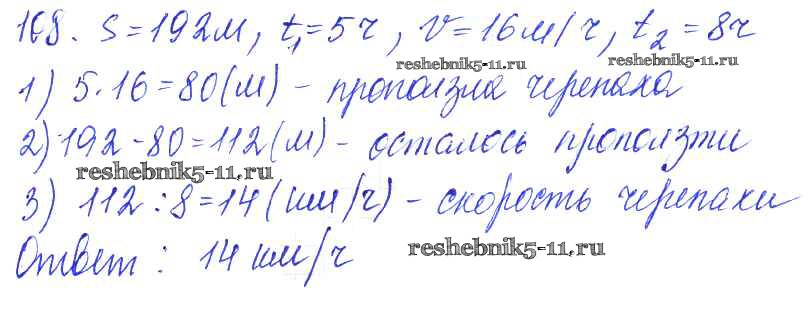 168. S=192м, t₁=5ч, V=16м/ч, t₂=8ч
reshebnik5-11.ru reshebnik5-11.ru
1) 5·16=80(м) - проползла черепаха
2) 192-80=112(м) - осталось проползти
reshebnik5-11.ru
3) 112:8=14(км/ч) - скорость черепахи
Ответ: 14 км/ч
reshebnik5-11.ru